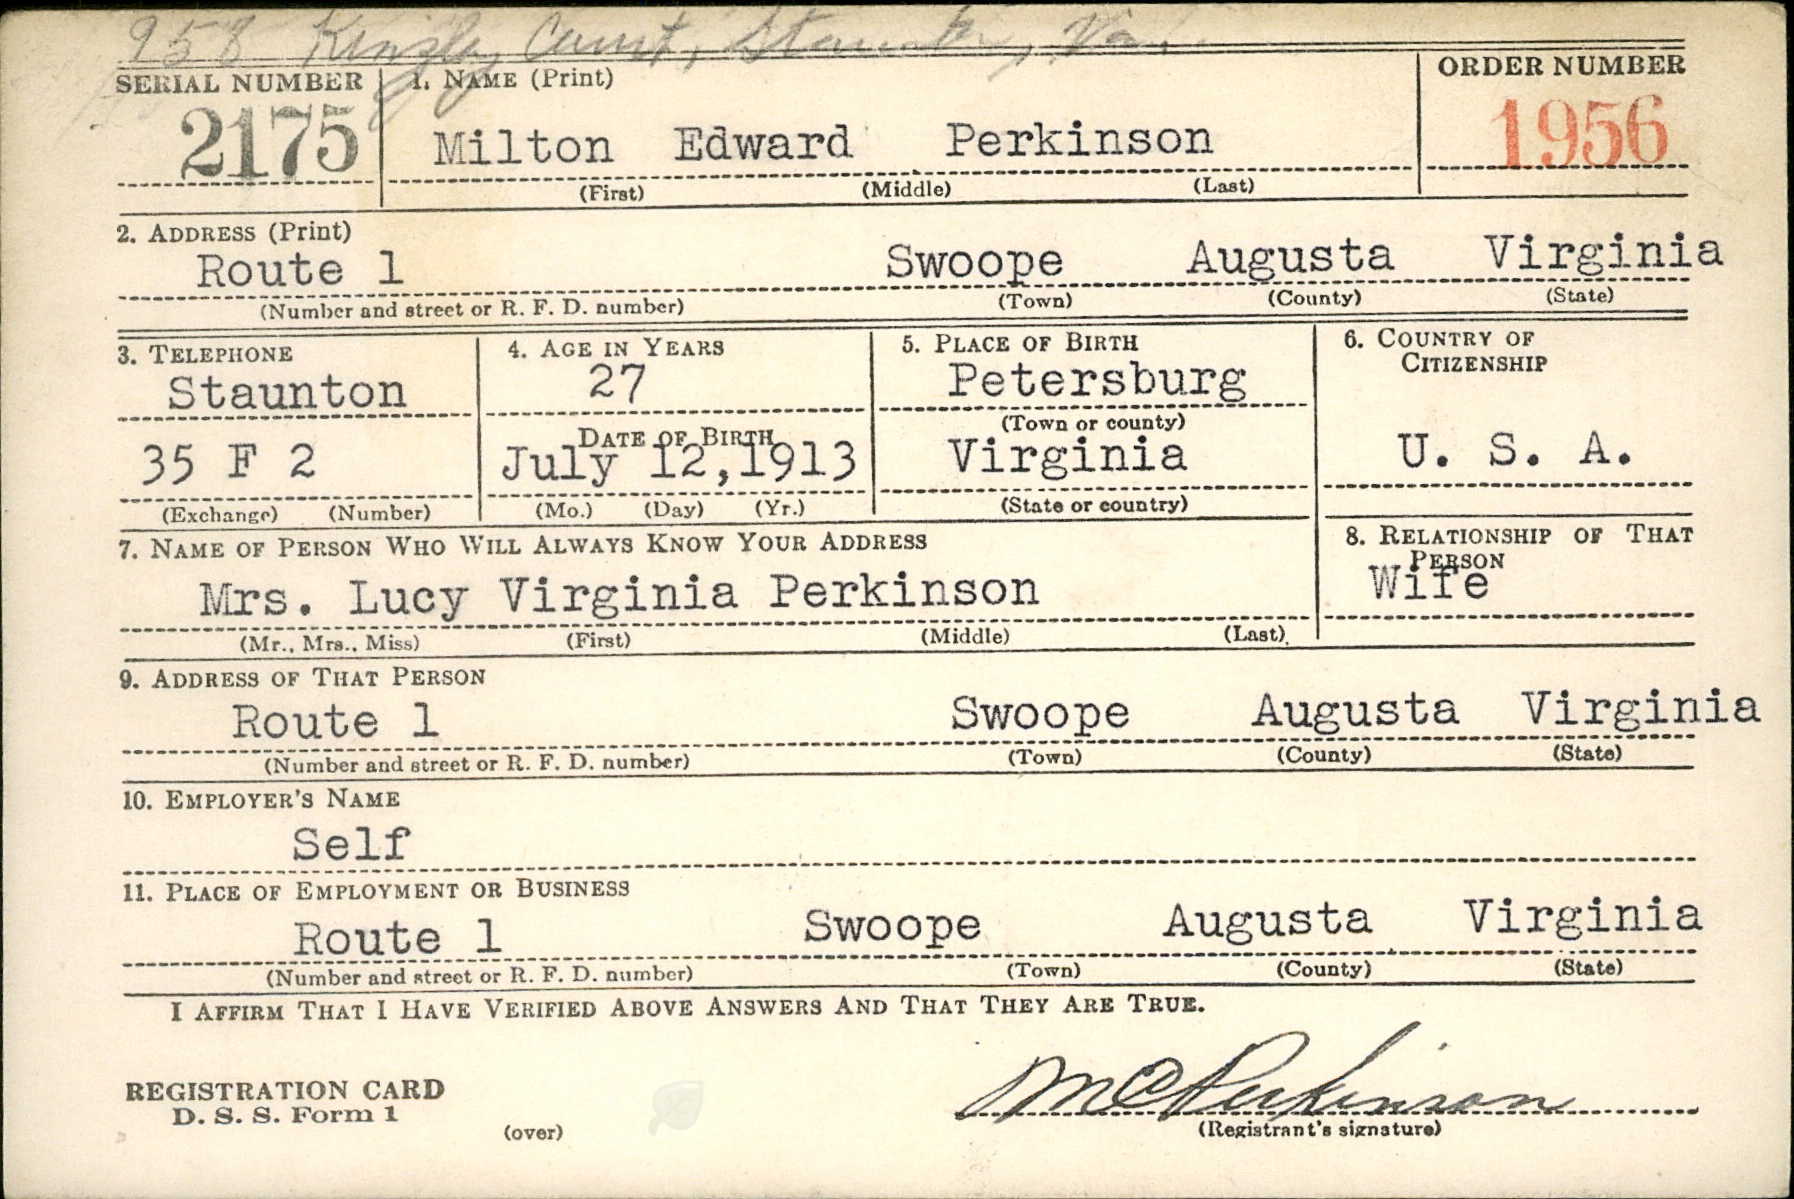 958 Court, Staunton, Va.
SERIAL NUMBER 1. NAME (Print) ORDER NUMBER
2175 Milton Edward Perkinson 1956
(First) (Middle) (Last)
2. ADDRESS (Print)
Route 1 Swoope Augusta Virginia
(Number and street or R. F. D. number) (Town) (County) (State)
3. TELEPHONE 4. AGE IN YEARS 5. PLACE OF BIRTH 6. COUNTRY OF CITIZENSHIP
Staunton 27 Petersburg
DATE OF BIRTH (Town or county)
35 F 2 July 12,1913 Virginia U. S. A.
(Exchange) (Number) (Mo.) (Day) (Yr.) (State or country)
7. NAME OF PERSON WHO WILL ALWAYS KNOW YOUR ADDRESS 8. RELATIONSHIP OF THAT PERSON
Mrs. Lucy Virginia Perkinson Wife
(Mr., Mrs., Miss) (First) (Middle) (Last)
9. ADDRESS OF THAT PERSON
Route 1 Swoope Augusta Virginia
(Number and street or R. F. D. number) (Town) (County) (State)
10. EMPLOYER'S NAME
Self
11. PLACE OF EMPLOYMENT OR BUSINESS
Route 1 Swoope Augusta Virginia
(Number and street or R. F. D. number) (Town) (County) (State)
I AFFIRM THAT I HAVE VERIFIED ABOVE ANSWERS AND THAT THEY ARE TRUE.
REGISTRATION CARD
D. S. S. Form 1
(over)
M E Perkinson
(Registrant's signature)